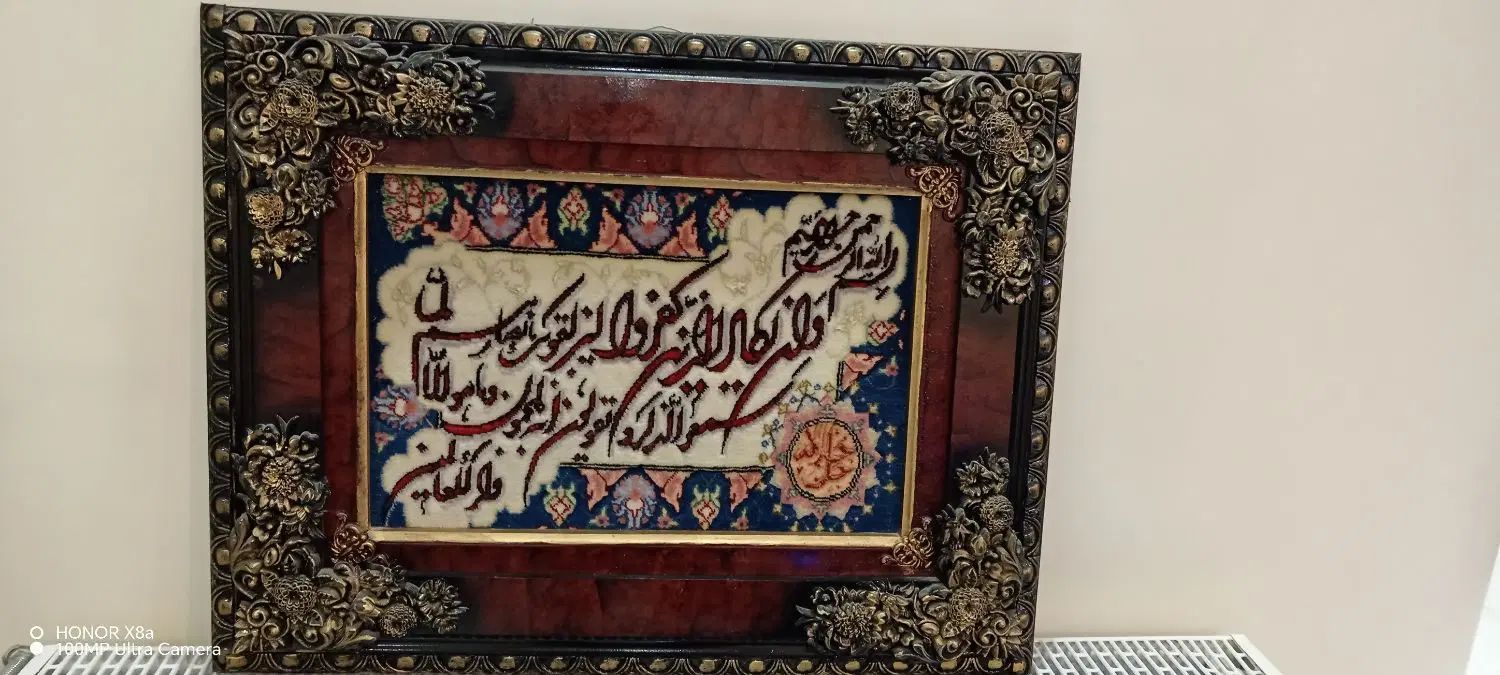 بسم الله الرحمن الرحیم
وان یکاد الذین کفروا لیزلقونک بابصارهم لما
سمعوا الذکر و یقولون انه لمجنون وما هو الا
ذکر للعالمین
HONOR X8a
108MP Ultra Camera